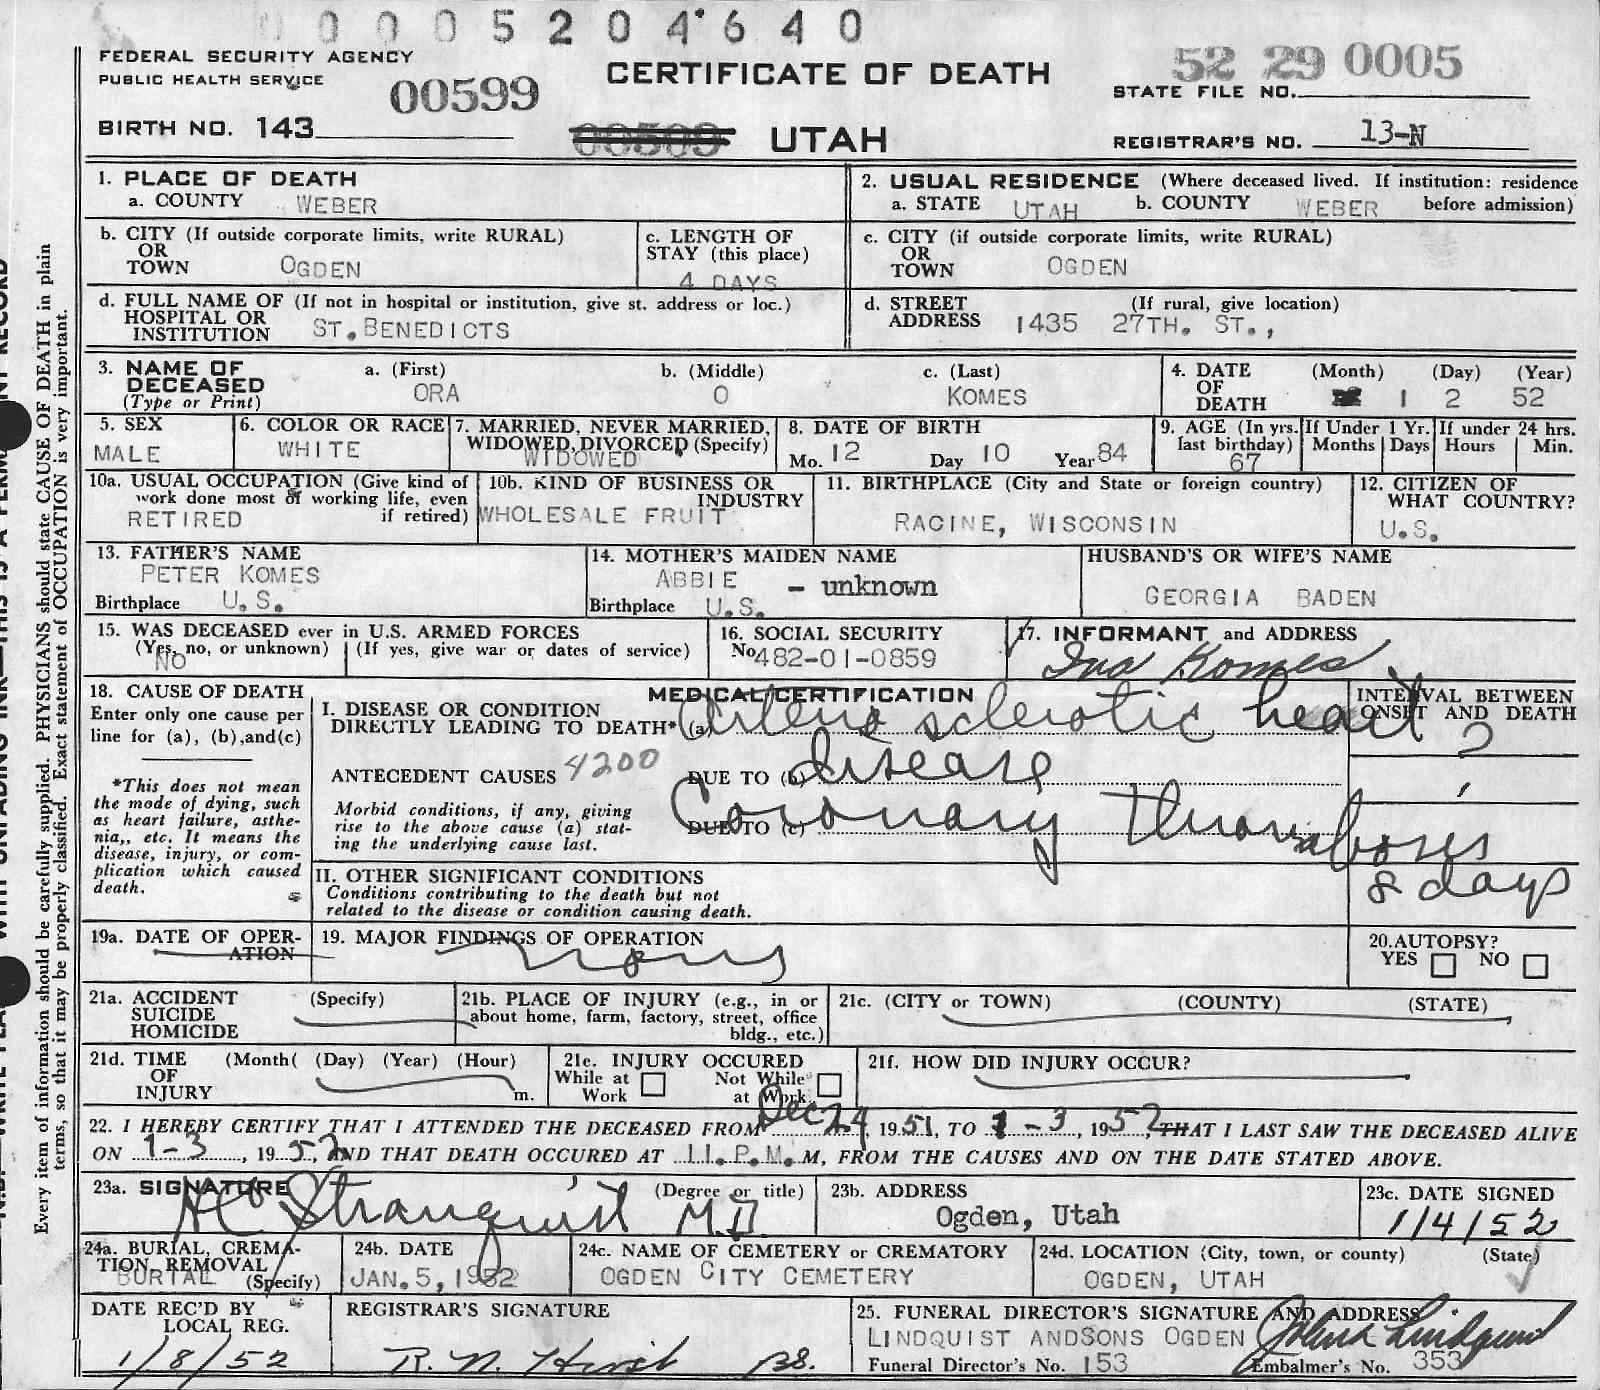 0 0 0 5 2 0 4 6 4 0
FEDERAL SECURITY AGENCY
PUBLIC HEALTH SERVICE
00599
CERTIFICATE OF DEATH
52 29 0005
STATE FILE NO.
BIRTH NO. 143
00509 UTAH
REGISTRAR'S NO. 13-N
1. PLACE OF DEATH
a. COUNTY WEBER
2. USUAL RESIDENCE (Where deceased lived. If institution: residence
a. STATE UTAH b. COUNTY WEBER before admission)
b. CITY (If outside corporate limits, write RURAL)
OR
TOWN OGDEN
c. LENGTH OF
STAY (this place)
4 DAYS
c. CITY (if outside corporate limits, write RURAL)
OR
TOWN OGDEN
d. FULL NAME OF (If not in hospital or institution, give st. address or loc.)
HOSPITAL OR
INSTITUTION ST. BENEDICTS
d. STREET (If rural, give location)
ADDRESS 1435 27TH. ST.,
3. NAME OF
DECEASED
(Type or Print)
a. (First)
ORA
b. (Middle)
O
c. (Last)
KOMES
4. DATE
OF
DEATH
(Month) (Day) (Year)
1 2 52
5. SEX
MALE
6. COLOR OR RACE
WHITE
7. MARRIED, NEVER MARRIED,
WIDOWED, DIVORCED (Specify)
WIDOWED
8. DATE OF BIRTH
Mo. 12 Day 10 Year 84
9. AGE (In yrs.
last birthday)
67
If Under 1 Yr.
Months Days
If under 24 hrs.
Hours Min.
10a. USUAL OCCUPATION (Give kind of
work done most of working life, even
RETIRED if retired)
10b. KIND OF BUSINESS OR
INDUSTRY
WHOLESALE FRUIT
11. BIRTHPLACE (City and State or foreign country)
RACINE, WISCONSIN
12. CITIZEN OF
WHAT COUNTRY?
U.S.
13. FATHER'S NAME
PETER KOMES
Birthplace U.S.
14. MOTHER'S MAIDEN NAME
ABBIE - unknown
Birthplace U.S.
HUSBAND'S OR WIFE'S NAME
GEORGIA BADEN
15. WAS DECEASED ever in U.S. ARMED FORCES
(Yes, no, or unknown) (If yes, give war or dates of service)
NO
16. SOCIAL SECURITY
No. 482-01-0859
17. INFORMANT and ADDRESS
Komes
18. CAUSE OF DEATH
Enter only one cause per
line for (a), (b), and (c)
*This does not mean
the mode of dying, such
as heart failure, asthe-
nia,, etc. It means the
disease, injury, or com-
plication which caused
death.
MEDICAL CERTIFICATION
I. DISEASE OR CONDITION
DIRECTLY LEADING TO DEATH* (a) Arterio sclerotic heart
ANTECEDENT CAUSES 4200 DUE TO (b) disease
Morbid conditions, if any, giving
rise to the above cause (a) stat-
ing the underlying cause last.
DUE TO (c) Coronary thrombosis
INTERVAL BETWEEN
ONSET AND DEATH
?
8 days
II. OTHER SIGNIFICANT CONDITIONS
Conditions contributing to the death but not
related to the disease or condition causing death.
19a. DATE OF OPER-
ATION
19. MAJOR FINDINGS OF OPERATION
20. AUTOPSY?
YES NO
21a. ACCIDENT (Specify)
SUICIDE
HOMICIDE
21b. PLACE OF INJURY (e.g., in or
about home, farm, factory, street, office
bldg., etc.)
21c. (CITY or TOWN) (COUNTY) (STATE)
21d. TIME (Month( (Day) (Year) (Hour)
OF
INJURY m.
21e. INJURY OCCURED
While at Not While
Work at Work
21f. HOW DID INJURY OCCUR?
22. I HEREBY CERTIFY THAT I ATTENDED THE DECEASED FROM Dec 24, 1951, TO 1-3, 1952, THAT I LAST SAW THE DECEASED ALIVE
ON 1-3, 1952, AND THAT DEATH OCCURED AT 11.P.M. M, FROM THE CAUSES AND ON THE DATE STATED ABOVE.
23a. SIGNATURE (Degree or title)
Stranquist M.D.
23b. ADDRESS
Ogden, Utah
23c. DATE SIGNED
1/4/52
24a. BURIAL, CREMA-
TION, REMOVAL
BURIAL (Specify)
24b. DATE
JAN. 5, 1952
24c. NAME OF CEMETERY or CREMATORY
OGDEN CITY CEMETERY
24d. LOCATION (City, town, or county) (State)
OGDEN, UTAH
DATE REC'D BY
LOCAL REG.
1/8/52
REGISTRAR'S SIGNATURE
25. FUNERAL DIRECTOR'S SIGNATURE AND ADDRESS
LINDQUIST AND SONS OGDEN
Funeral Director's No. 153 Embalmer's No. 353
Every item of information should be carefully supplied. PHYSICIANS should state CAUSE OF DEATH in plain
terms, so that it may be properly classified. Exact statement of OCCUPATION is very important.